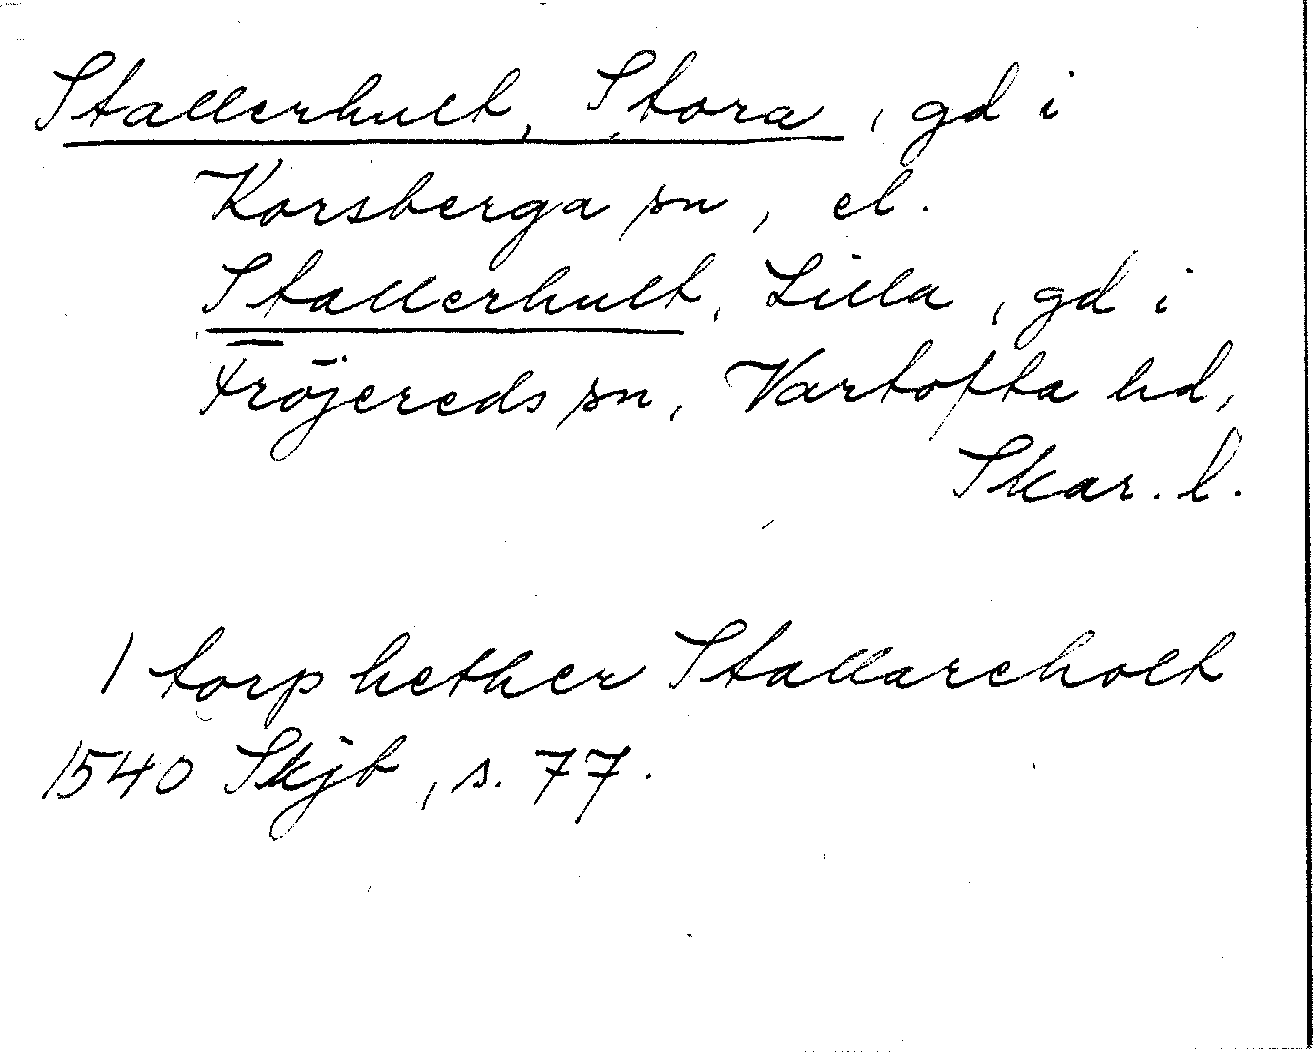 Stallerhult, Stora, gd i
Korsberga sn, el.
Stallerhult, Lilla, gd i
Fröjereds sn, Vartofta hd,
Skar. l.
1 torp hether Stallareholt
1540 Skjb, s. 77.